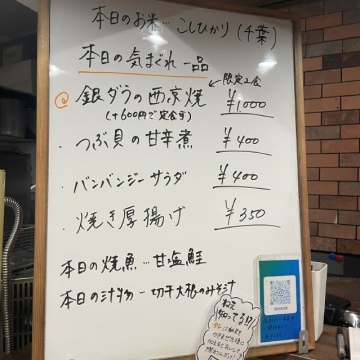 本日のお米… こしひかり (千葉)
本日の気まぐれ一品
限定2食
銀ダラの西京焼 ¥1,000
(+600円で定食可)
・つぶ貝の甘辛煮 ¥400
・バンバンジーサラダ ¥400
・焼き厚揚げ ¥350
本日の焼魚…甘塩鮭
本日の汁物…切干大根のみそ汁
知ってる!?